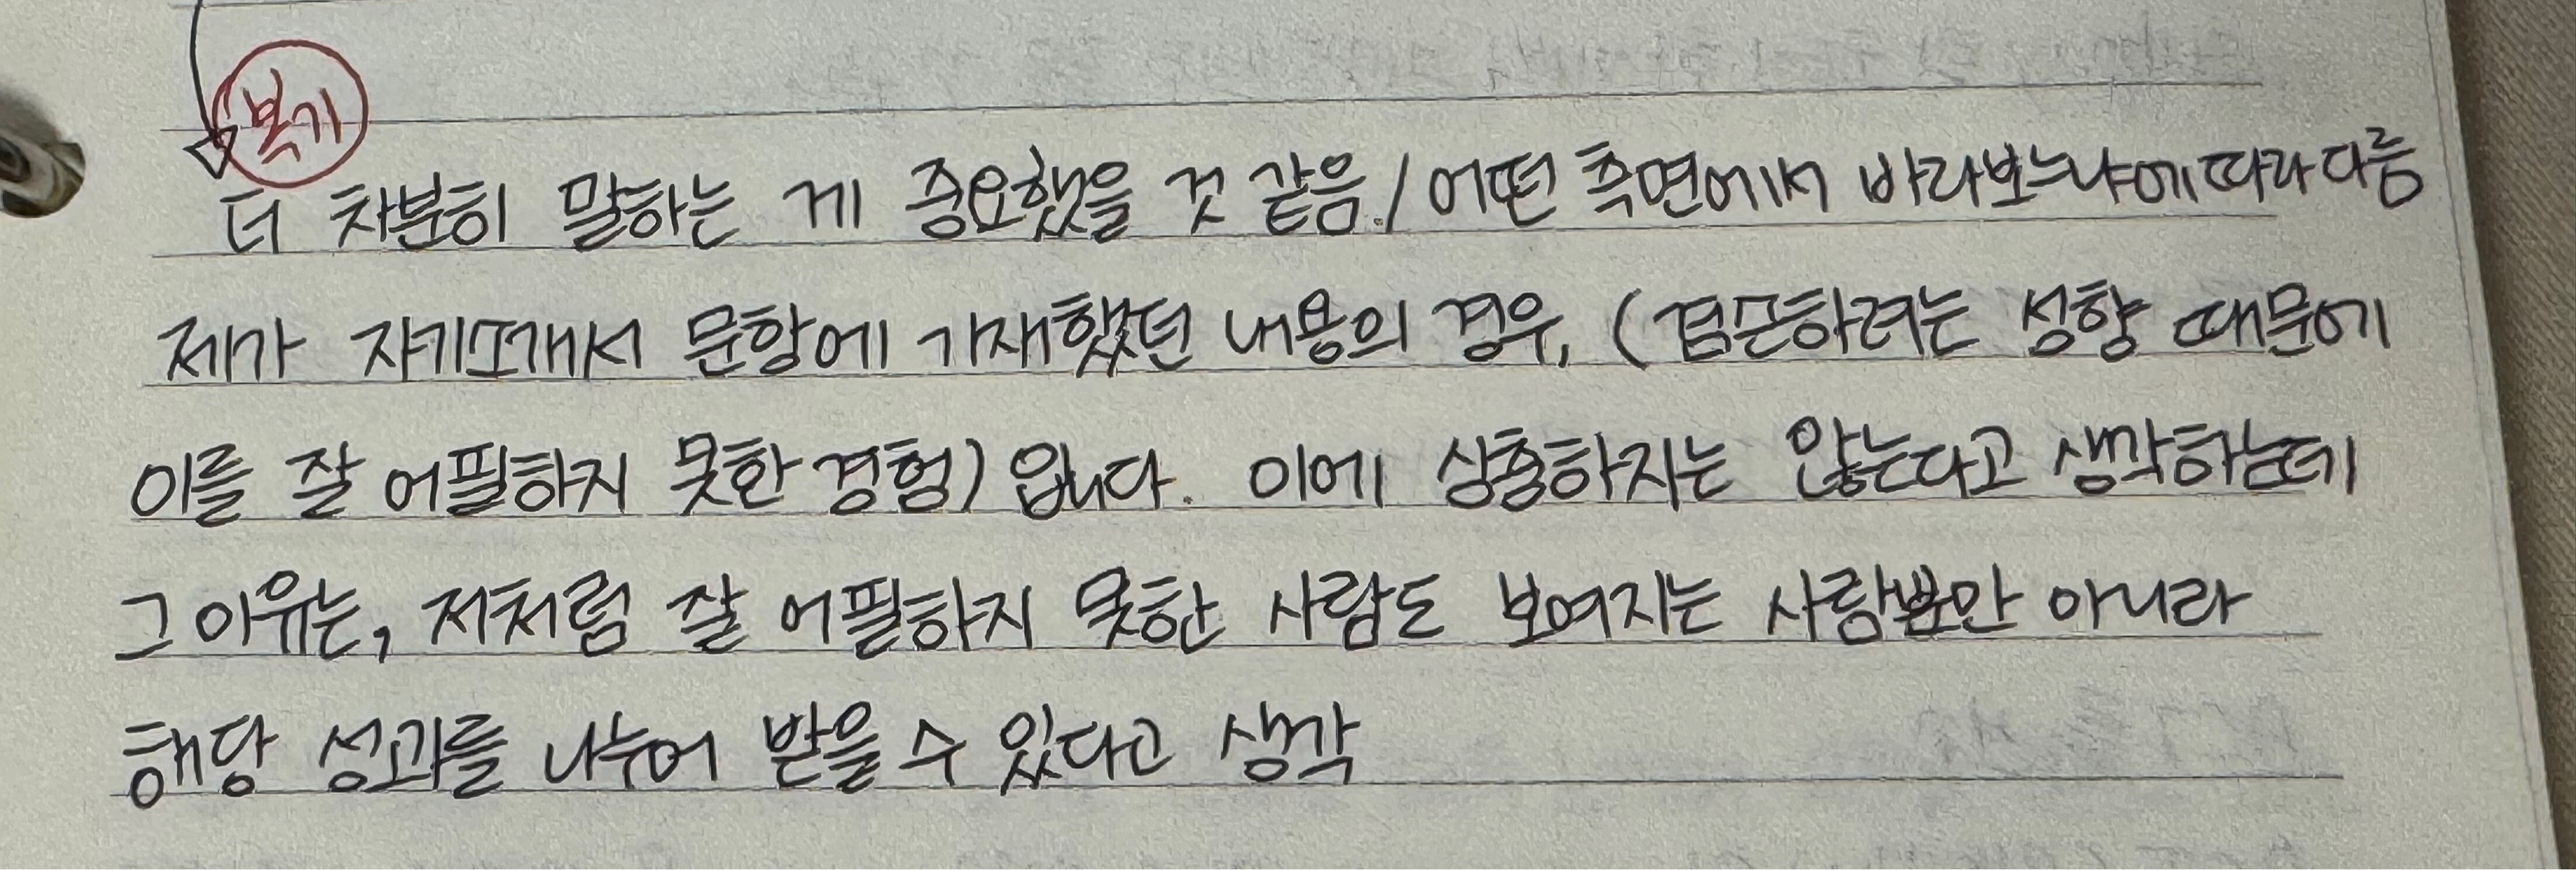 복기
더 차분히 말하는 게 중요했을 것 같음. / 어떤 측면에서 바라보느냐에 따라 다름
제가 자기소개서 문항에 기재했던 내용의 경우, (접근하려는 성향 때문에
이를 잘 어필하지 못한 경험) 입니다. 이에 상충하지는 않는다고 생각하는데
그 이유는, 저처럼 잘 어필하지 못한 사람도 보여지는 사람뿐만 아니라
해당 성과를 나누어 받을 수 있다고 생각